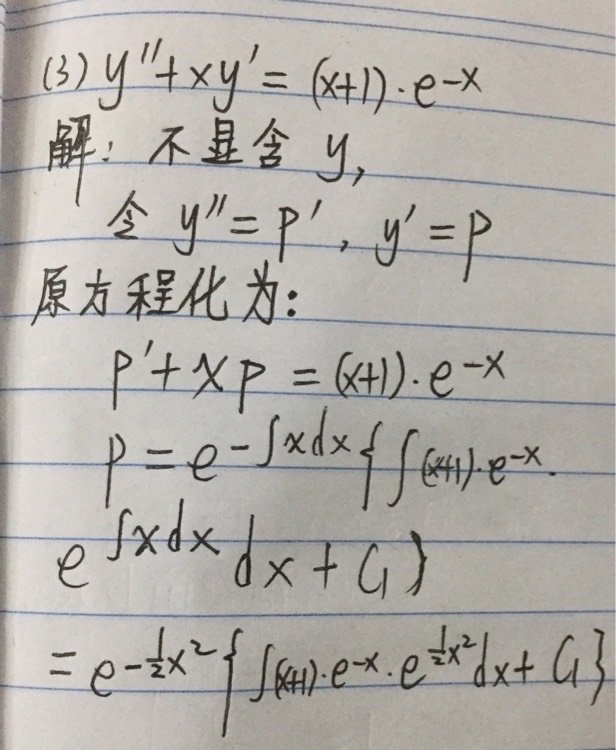 (3) y''+xy'=(x+1)·e^{-x}
解：不显含 y，
令 y''=p'，y'=p
原方程化为：
p'+xp=(x+1)·e^{-x}
p=e^{-∫xdx}{∫(x+1)·e^{-x}·
e^{∫xdx}dx+C₁}
=e^{-\frac{1}{2}x²}{∫(x+1)·e^{-x}·e^{\frac{1}{2}x²}dx+C₁}